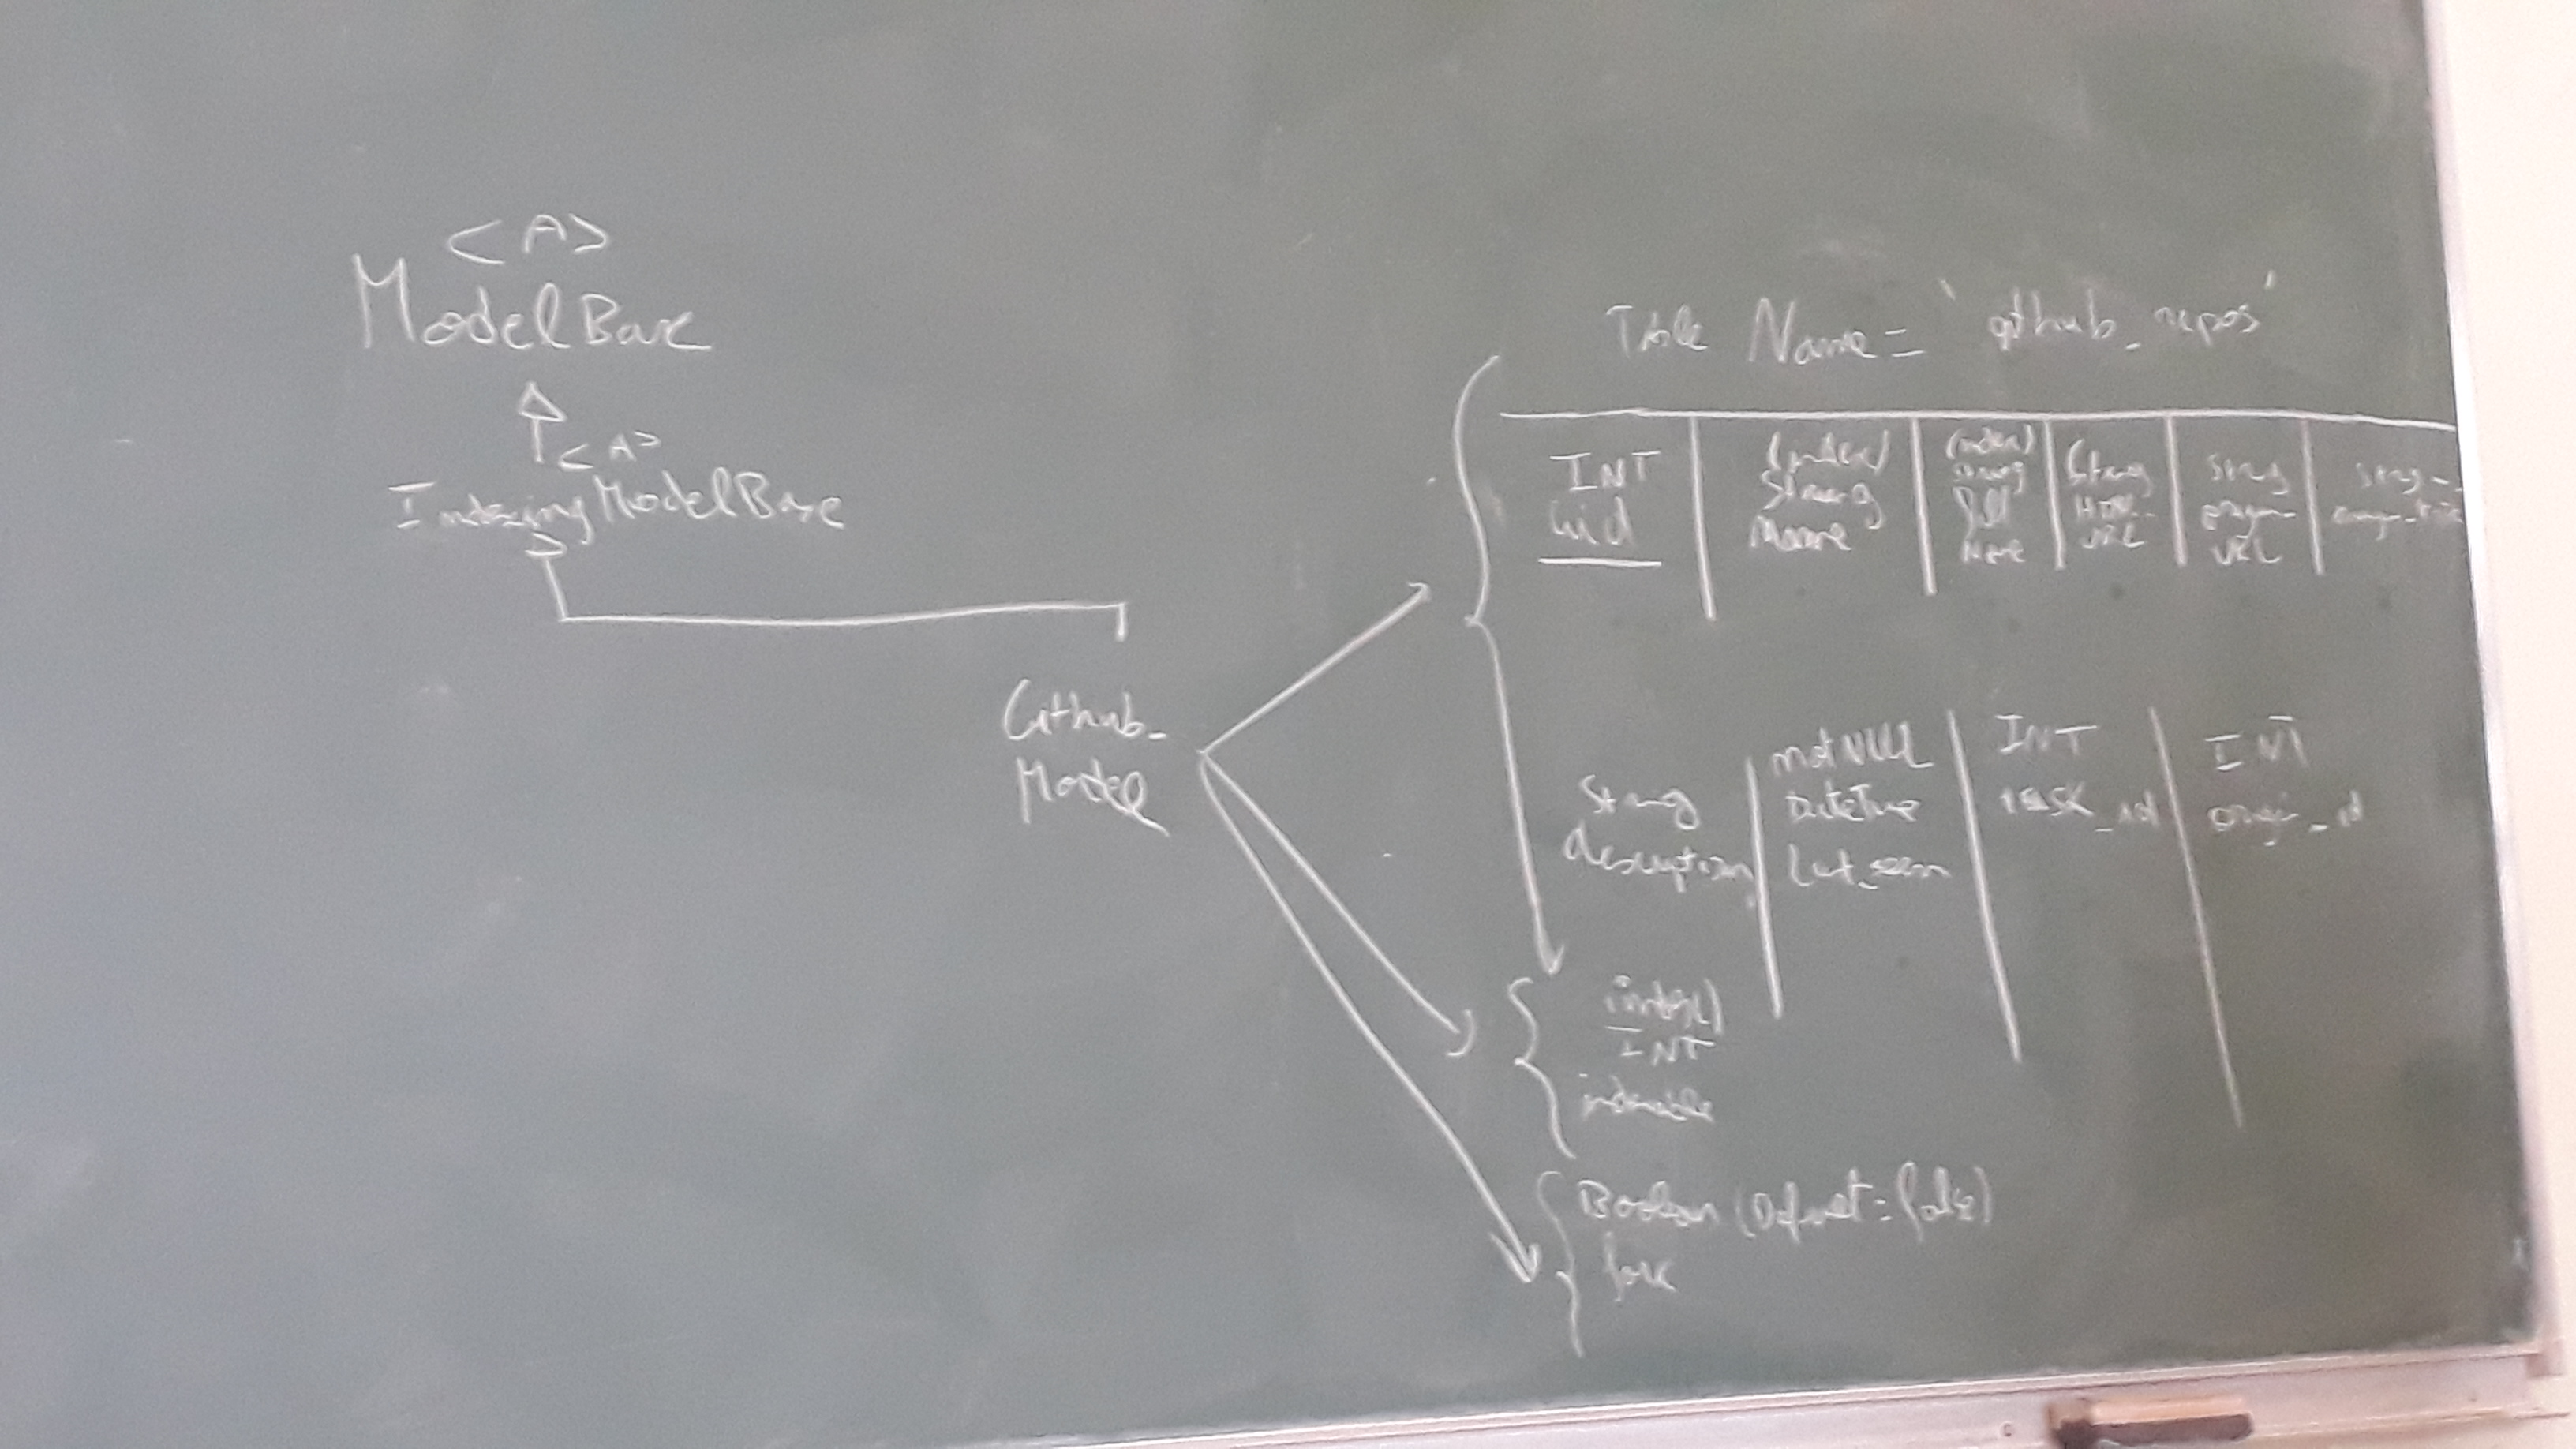 <A>
ModelBase
<A>
IndexingModelBase
Github_
Model
Table Name = 'github_repos'
INT
uid
(index)
String
Name
(index)
String
full
Name
String
HTML
URL
String
origin_
URL
String
String
description
notNULL
DateTime
last_seen
INT
task_id
INT
origin_id
index()
INT
indexable
Boolean (Default = false)
fork